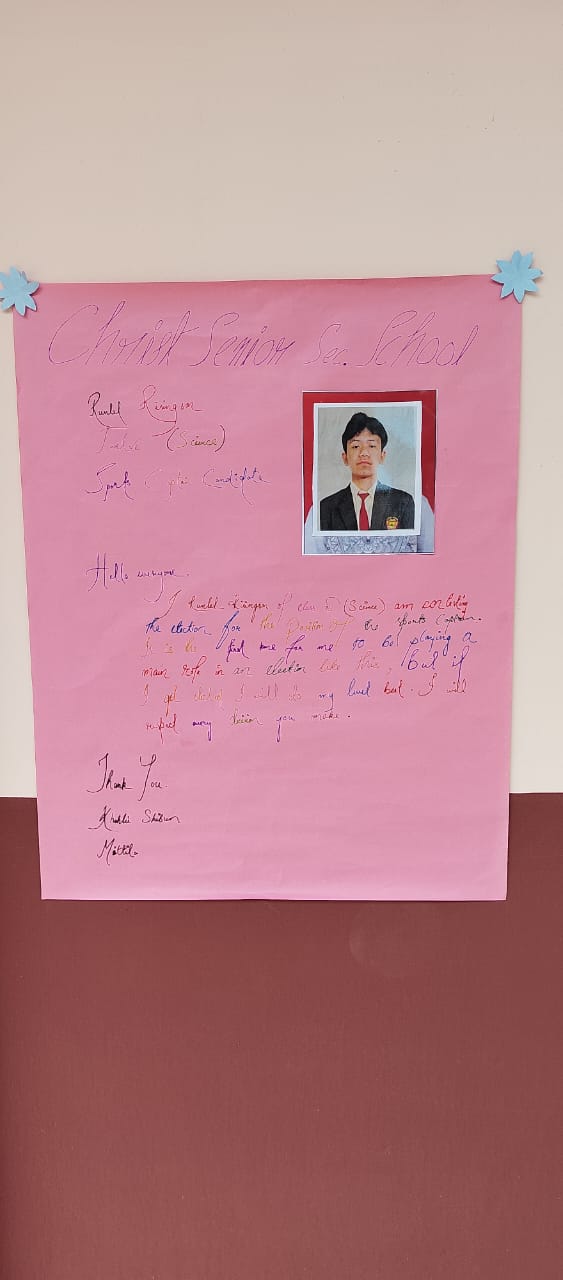 Christ Senior Sec. School
(Science)
Sports Captain Candidate
Hello everyone.
I of class (Science) am contesting
the election for the Position of the sports Captain.
It is the first time for me to be playing a
main role in an election like this, But if
I get elected I will do my level best. I will
respect every you make.
Thank You.